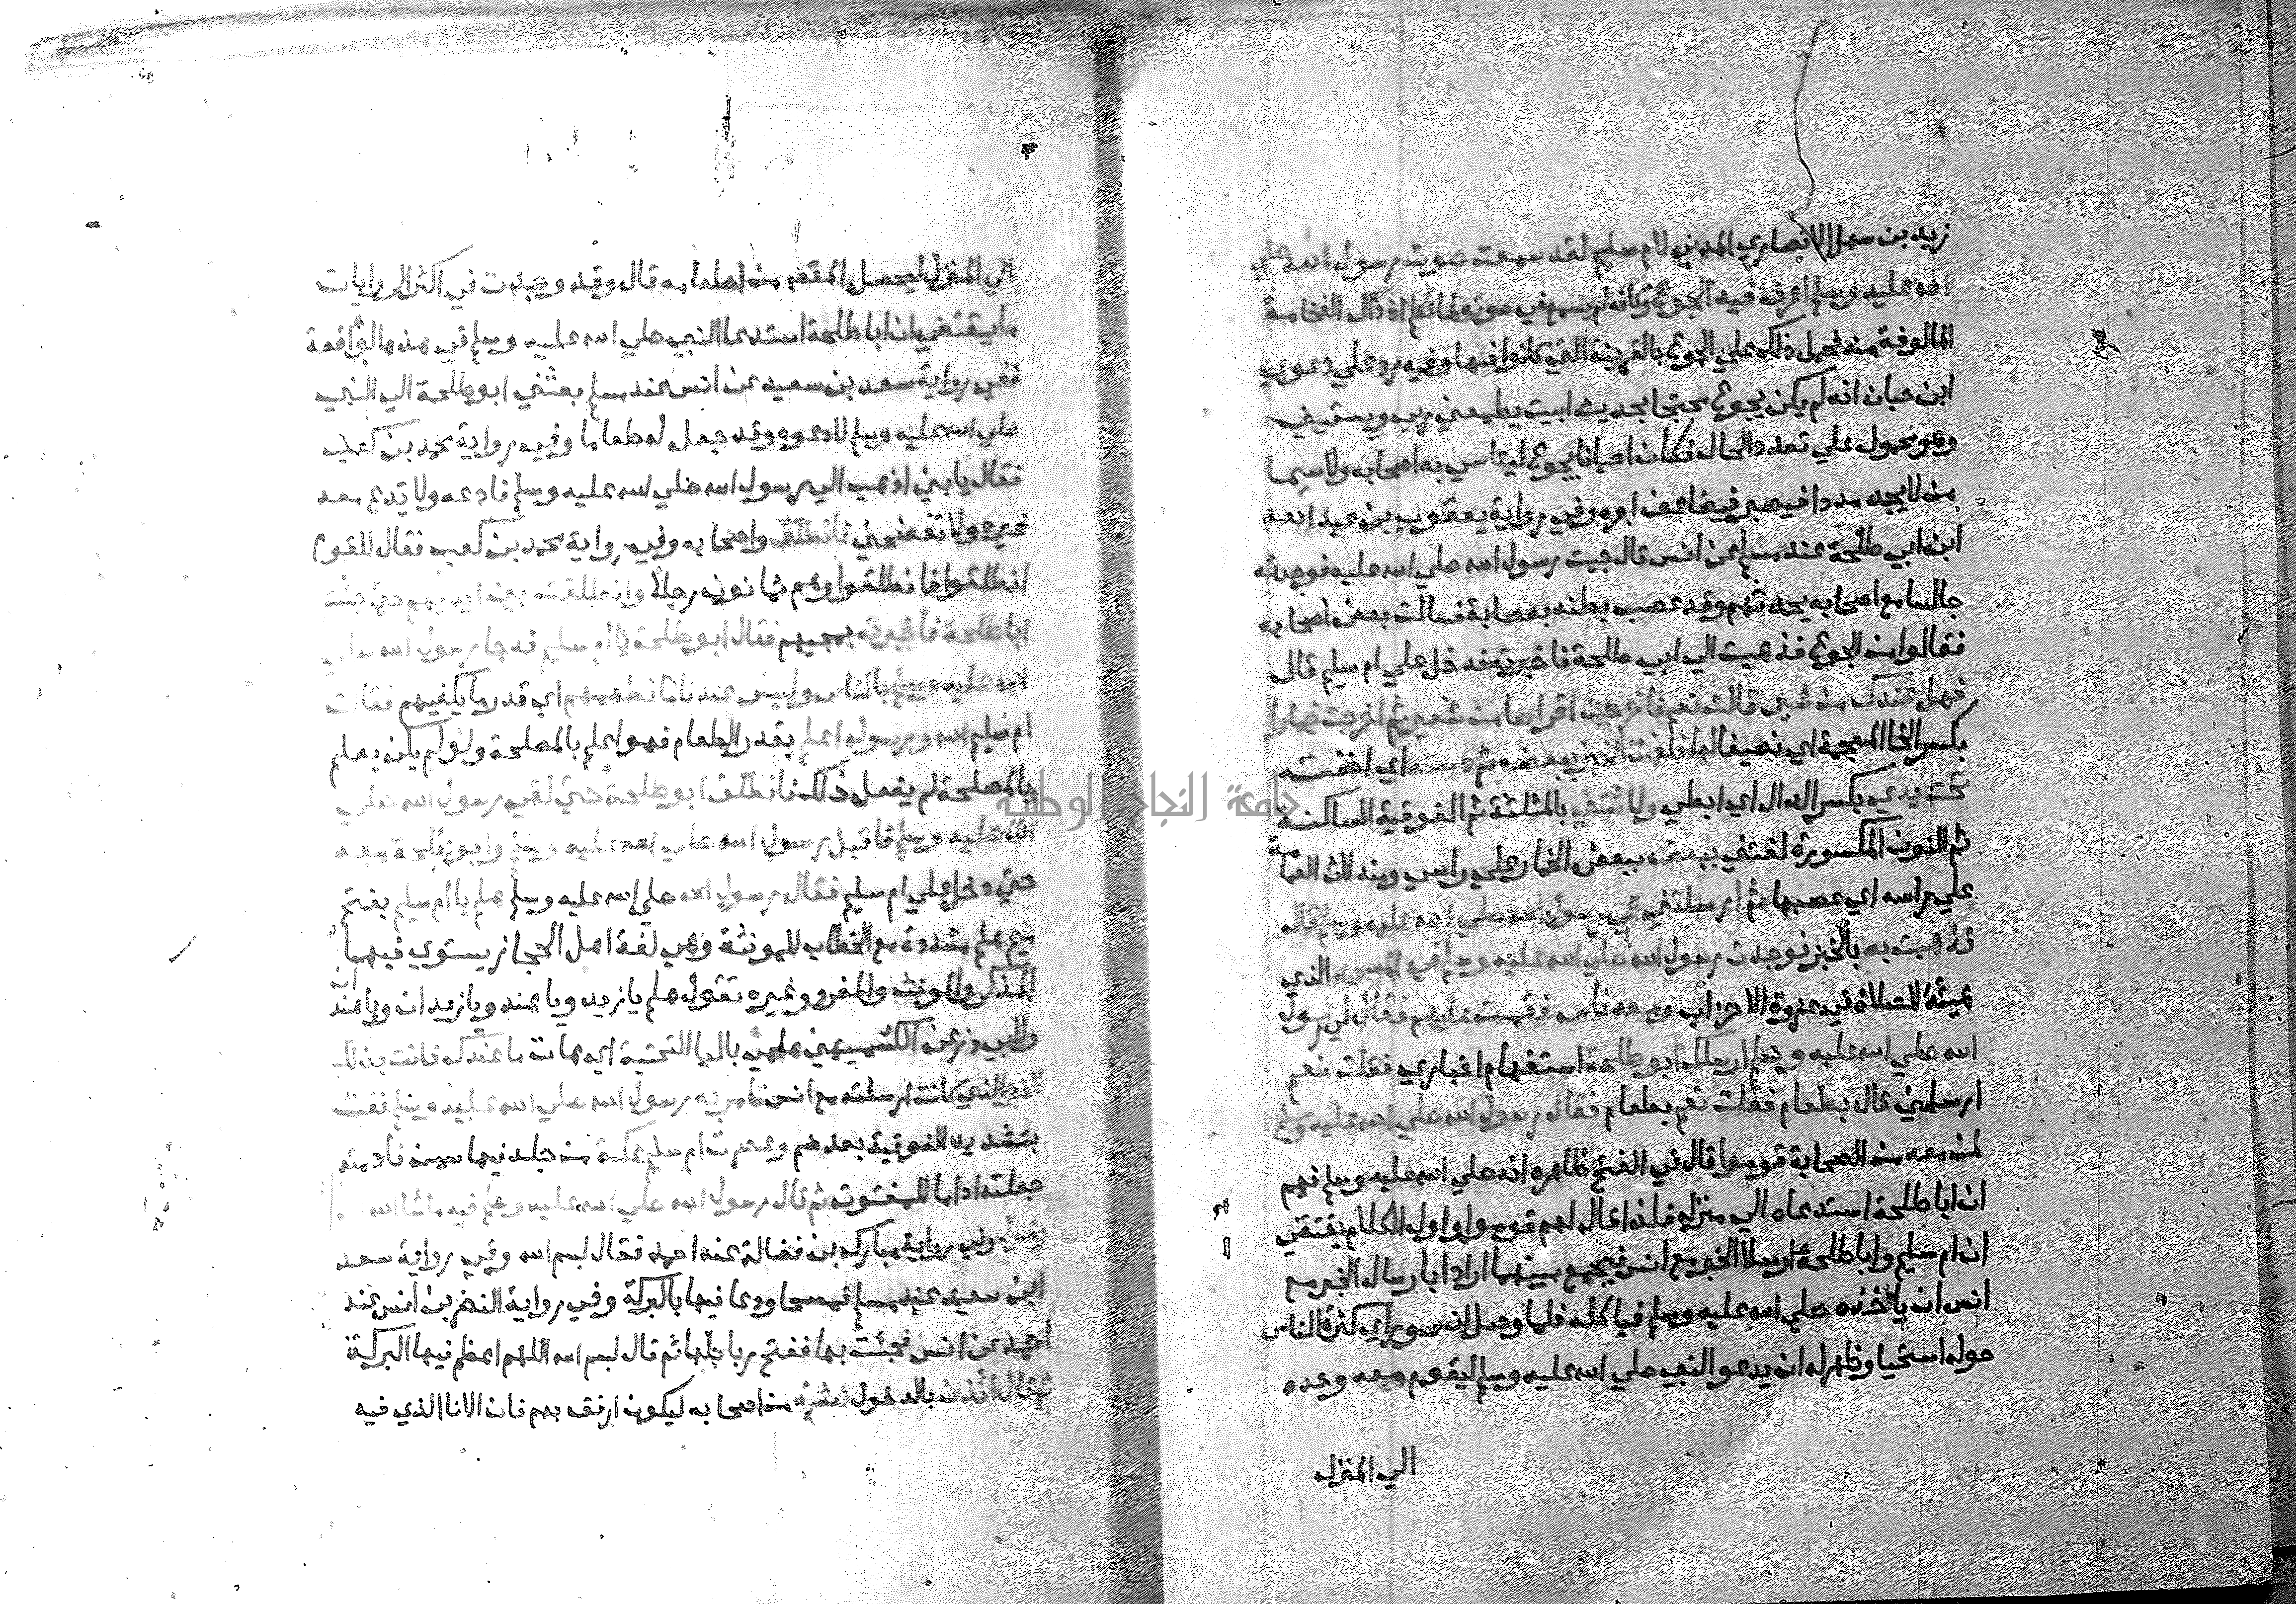 زيد بن سهل الانصاري المدني لام سليم لقد سمعت صوت رسول الله صلي
الله عليه وسلم اعرف فيه الجوع وكانه لم يسمع في صوته لما تكلم اذ ذاك الفخامة
المالوفة منه فحمل ذلك علي الجوع بالقرينة التي كانوا فيها وفيه رد علي دعوي
ابن حبان انه لم يكن يجوع محتجا بحديث ابيت يطعمني ربي ويسقيني
وهو محمول علي تعدد الحال فكان احيانا يجوع ليتاسي به اصحابه ولا سيما
من لا يجد مددا فيصبر فيضاعف اجره وفي رواية يعقوب بن عبد الله
ابن ابي طلحة عند مسلم عن انس قال جيت رسول الله صلي الله عليه فوجدته
جالسا مع اصحابه يحدثهم وقد عصب بطنه بعصابة فسالت بعض اصحابه
فقالوا من الجوع فذهبت الي ابي طلحة فاخبرته فدخل علي ام سليم قال
فهل عندك من شيي قالت نعم فاخرجت اقراصا من شعير ثم اخرجت خمارا
بكسر الخا المعجمة اي نصيفا لها فلفت الخبز ببعضه ثم دسته اي اخفته
تحت يدي بكسر الدال اي ابطي ولاثتني بالمثلثة ثم الفوقية الساكنة
ثم النون المكسورة لفتني ببعضه ببعض الخمار علي راسي ومنه لاث العمامة
علي راسه اي عصبها ثم ارسلتني الي رسول الله صلي الله عليه وسلم قال
فذهبت به بالخبز فوجدت رسول الله صلي الله عليه وسلم في المسجد الذي
هيئة للصلاة في غزوة الاحزاب ومعه ناس فقمت عليهم فقال لي رسول
الله صلي الله عليه وسلم ارسلك ابو طلحة استفهام اخباري فقلت نعم
ارسلني قال بطعام فقلت نعم بطعام فقال رسول الله صلي الله عليه وسلم
لمن معه من الصحابة قوموا قال في الفتح ظاهره انه صلي الله عليه وسلم فهم
ان ابا طلحة استدعاه الي منزله فلذا قال لهم قوموا واول الكلام يقتضي
ان ام سليم وابا طلحة ارسلا الخبز مع انس فيجمع بينهما ارادا بارسال الخبز مع
انس ان ياخذه صلي الله عليه وسلم فياكله فلما وصل انس وراي كثرة الناس
حوله استحيا وظهر له ان يدعو النبي صلي الله عليه وسلم ليقوم معه وحده
الي المنزل
الي المنزل ليحصل المقصد من اطعامه قال وقد وجدت في اكثر الروايات
ما يقتضي ان ابا طلحة استدعا النبي صلي الله عليه وسلم في هذه الواقعة
ففي رواية سعد بن سعيد عن انس عند مسلم بعثني ابو طلحة الي النبي
صلي الله عليه وسلم لادعوه وقد جعل له طعاما وفي رواية محمد بن كعب
فقال يا بني اذهب الي رسول الله صلي الله عليه وسلم فادعه ولا تدع معه
غيره ولا تفضحني فانطلق واصحابه وفي رواية محمد بن كعب فقال للقوم
انطلقوا فانطلقوا وهم ثمانون رجلا وانطلقت بين ايديهم حتي جئت
ابا طلحة فاخبرته بمجيهم فقال ابو طلحة يا ام سليم قد جا رسول الله صلي
الله عليه وسلم بالناس وليس عندنا ما نطعمهم اي قدر ما يكفيهم فقالت
ام سليم الله ورسوله اعلم بقدر الطعام فهو اعلم بالمصلحة ولو لم يكن يعلم
بالمصلحة لم يفعل ذلك فانطلق ابو طلحة حتي لقي رسول الله صلي
الله عليه وسلم فاقبل رسول الله صلي الله عليه وسلم وابو طلحة معه
حتي دخل علي ام سليم فقال رسول الله صلي الله عليه وسلم هلم يا ام سليم بفتح
ميم هلم مشددة مع الخطاب للمونثة وهي لغة اهل الحجاز يستوي فيها
المذكر والمونث والمفرد وغيره تقول هلم يا زيد ويا هند ويا زيدان ويا هندان
ولابي ذر عن الكشميهني هلمي باليا التحتية اي هات ما عندك فاتت بذلك
الخبز الذي كانت ارسلته مع انس فامر به رسول الله صلي الله عليه وسلم ففت
بتشديد الفوقية بعد ضم وعصرت ام سليم عكة من جلد فيها سمن فادمته
جعلته اداما للمفتوت ثم قال رسول الله صلي الله عليه وسلم فيه ما شا الله
يقول وفي رواية مبارك بن فضالة عند احمد فقال بسم الله وفي رواية سعد
ابن سعيد عند مسلم فمسحها ودعا فيها بالبركة وفي رواية النضر بن انس عند
احمد عن انس فجئت بها ففتح رباطها ثم قال بسم الله اللهم اعظم فيها البركة
ثم قال ائذن بالدخول لعشرة من اصحابه ليكون ارفق بهم فان الانا الذي فيه
جامعة النجاح الوطنية